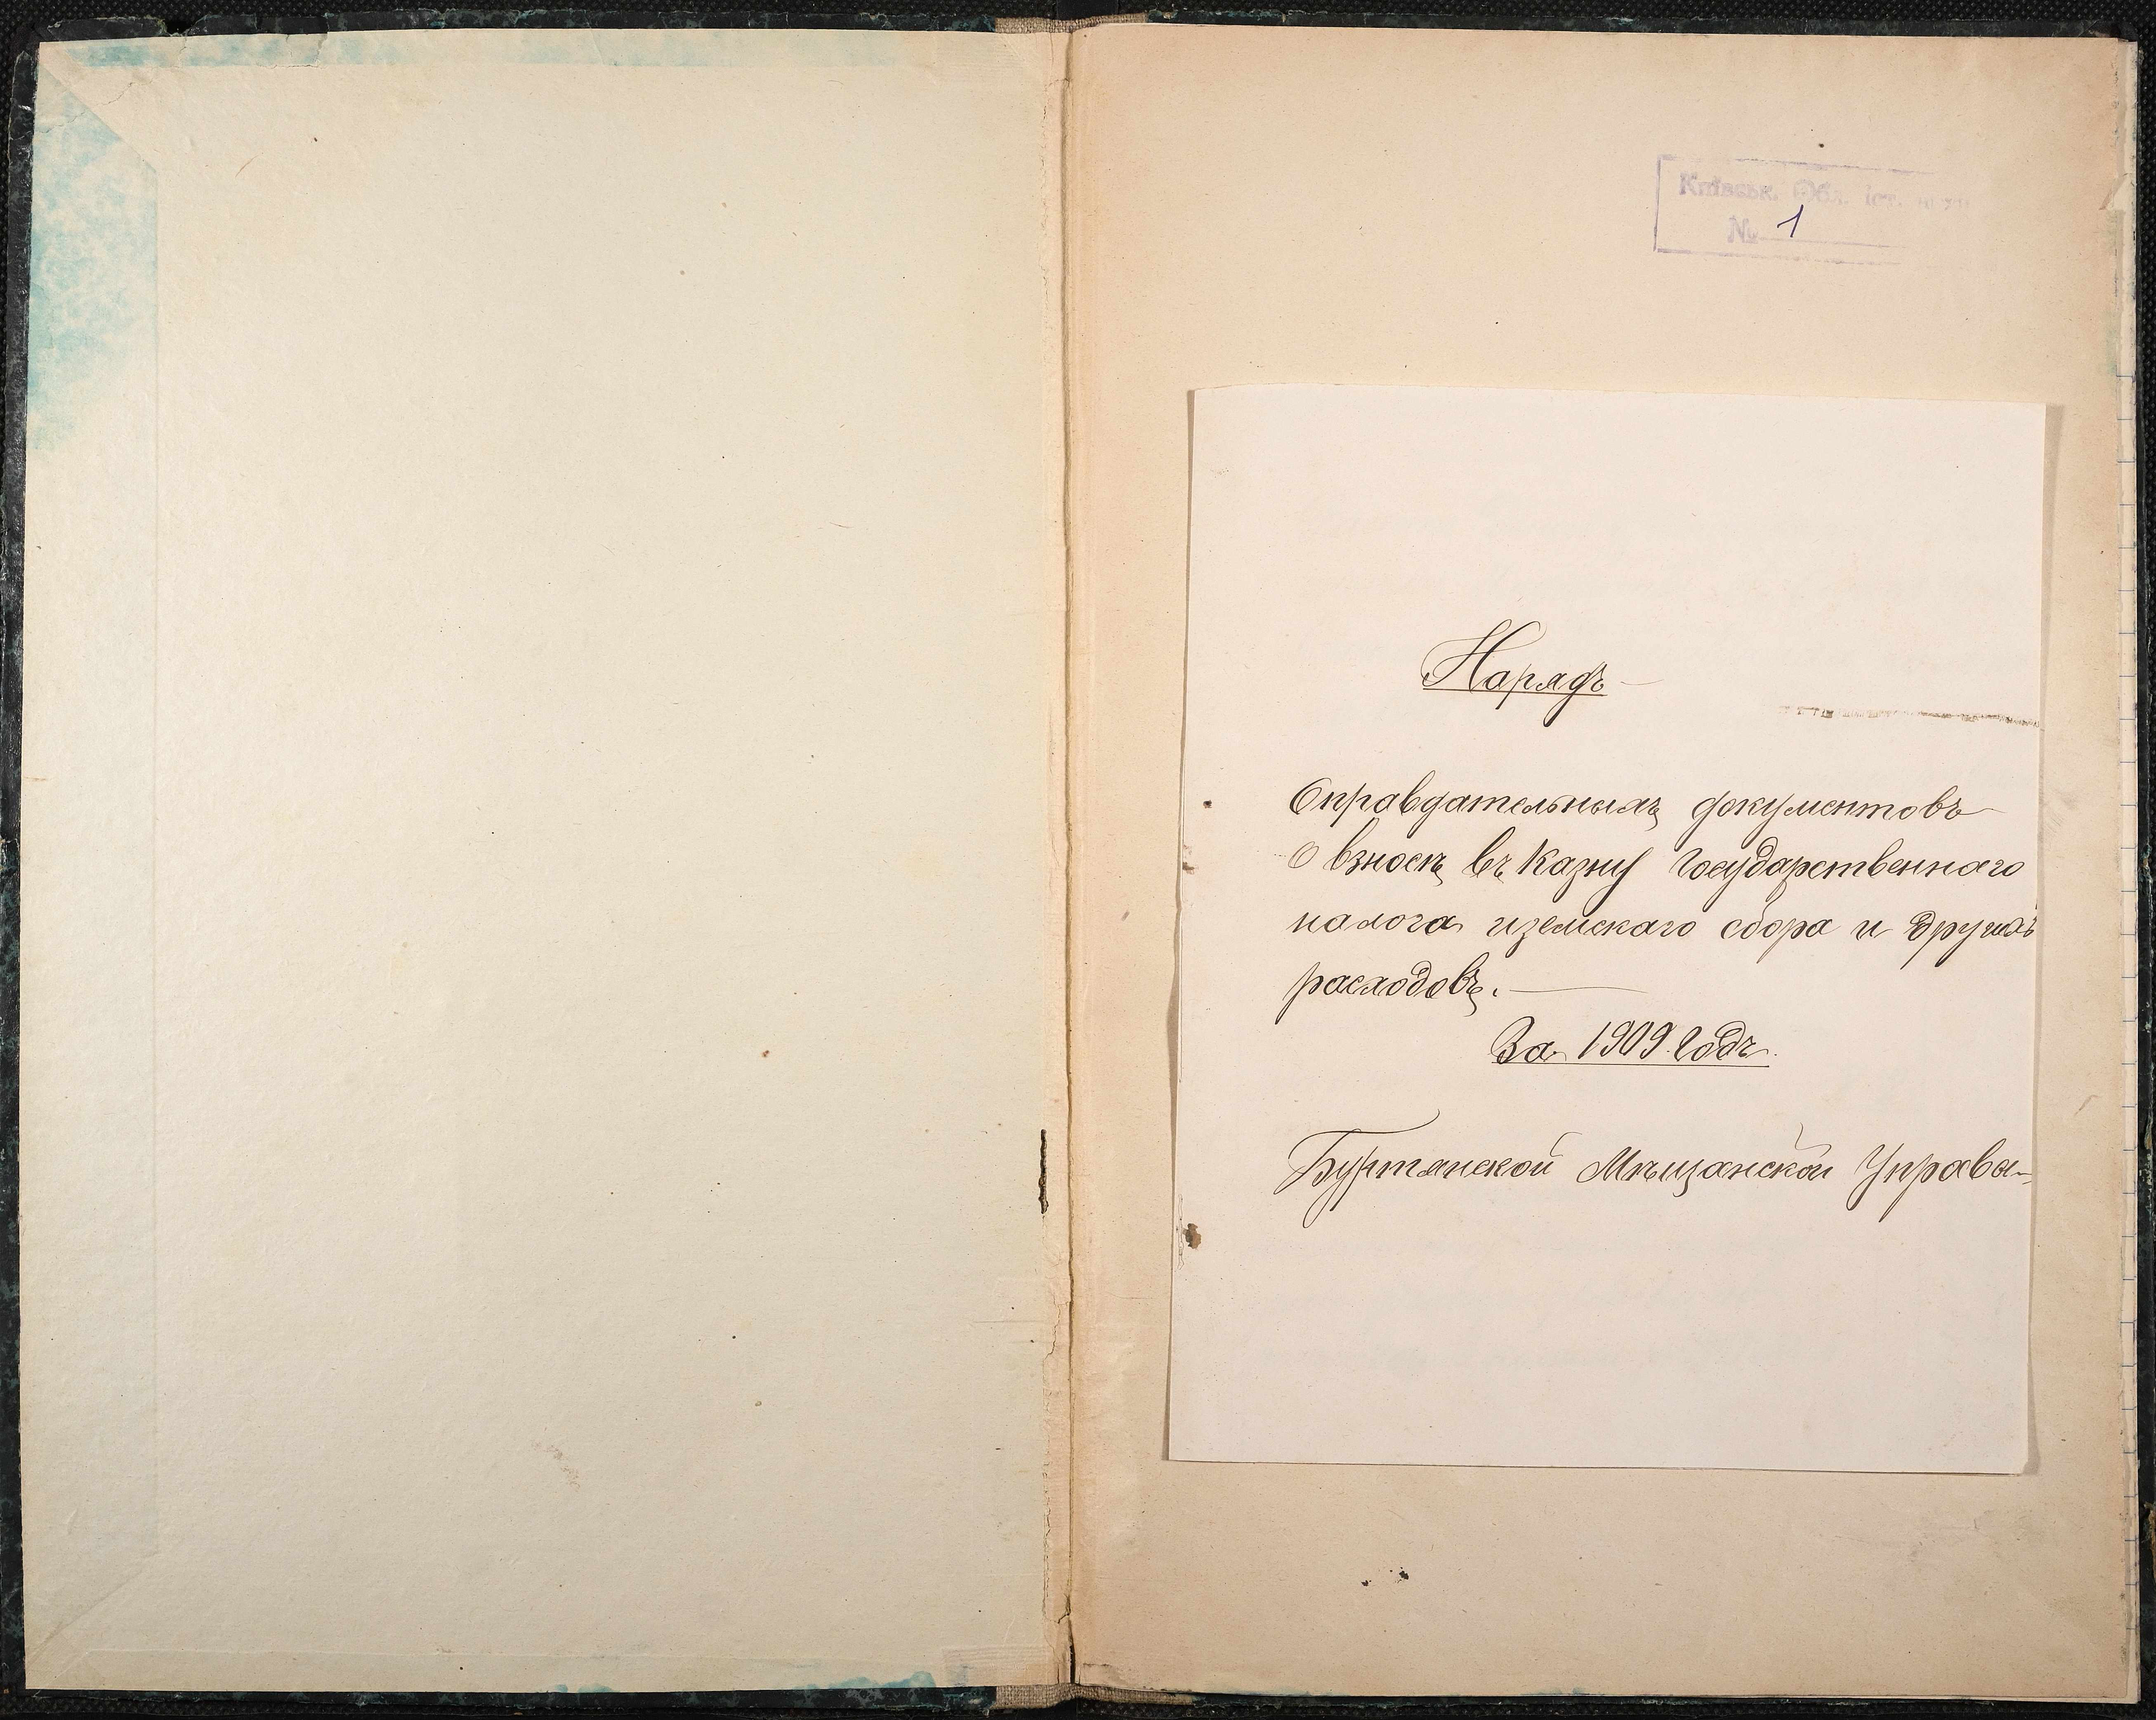 Київськ. Обл. іст. арх
№ 1
Нарядъ
Оправдательныхъ документовъ
О взносѣ въ Казну Государственнаго
налога и земскаго сбора и другихъ
расходовъ.
За 1909 годъ.
Буртянской Мѣщанской Управы